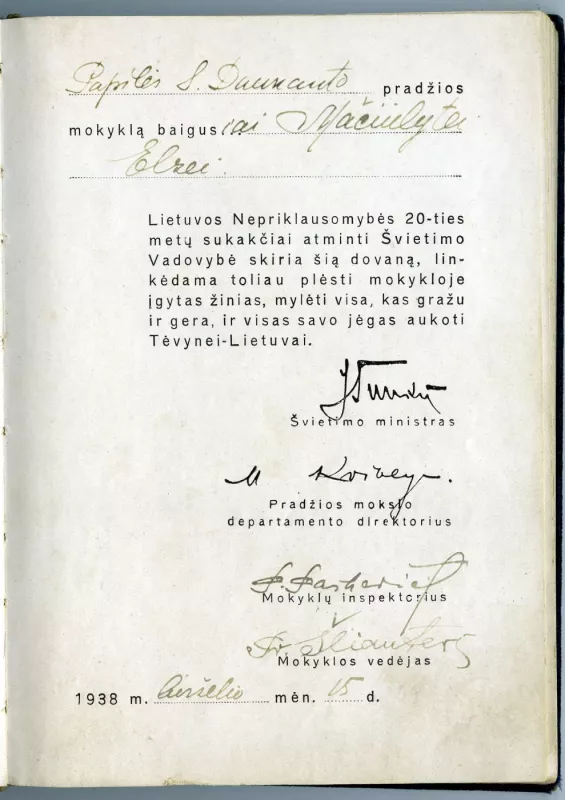 Papilės S. Daukanto pradžios
mokyklą baigusiai Mačiulytei
Elzei.
Lietuvos Nepriklausomybės 20-ties
metų sukakčiai atminti Švietimo
Vadovybė skiria šią dovaną, lin-
kėdama toliau plėsti mokykloje
įgytas žinias, mylėti visa, kas gražu
ir gera, ir visas savo jėgas aukoti
Tėvynei-Lietuvai.
Švietimo ministras
M
Pradžios mokslo
departamento direktorius
Mokyklų inspektorius
Mokyklos vedėjas
1938 m. birželio mėn. 15 d.